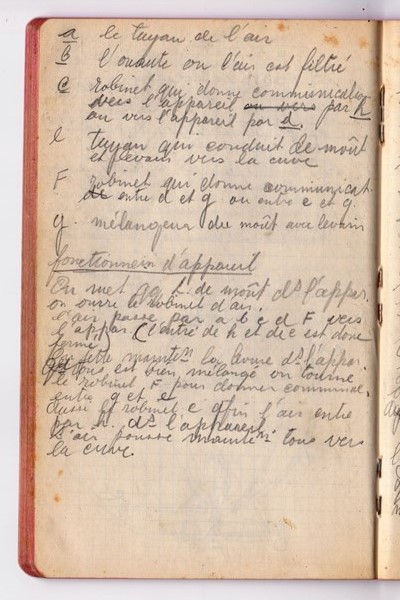 a le tuyau de l'air
b l'ouaute ou l'air est filtré
c robinet qui donne communication
vers l'appareil ou vers par h
ou vers l'appareil par d.
e tuyau qui conduit de moût
et levain vers la cuve
F robinet qui donne communicat.
de entre d et g ou entre e et g.
g. mélangeur du moût avec levain
fonctionnem d'appareil
On met qq l. de moût ds l'appar.
on ouvre le robinet d'air.
l'air passe par a b c d F vers
l'appar. (l'entré de h et de e est donc
fermé)
cette la levure ds l'appar.
tous est bien mélangé on tourne
le robinet F pour donner communic.
entre g et e
robinet c afin l'air entre
par h. ds l'appareil
L'air pousse tous vers
la cuve.